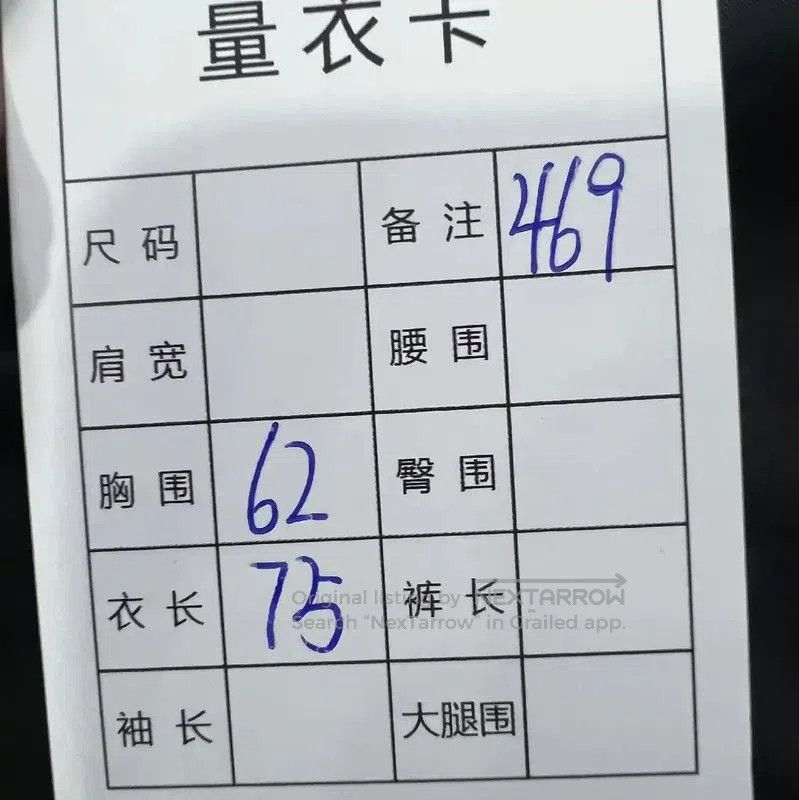 量衣卡
尺码 备注 469
肩宽 腰围
胸围 62 臀围
衣长 75 裤长
Original listing by NEXTARROW
Search "NexTarrow" in Grailed app.
袖长 大腿围